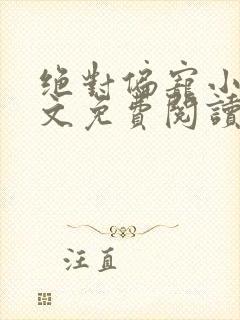 絕對偏寵小
文免費閱讀
汪直